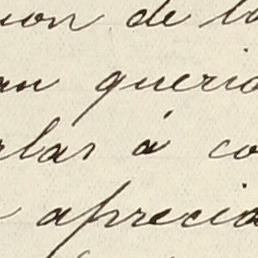 ion de la
an querid
rlas á co
aprecia